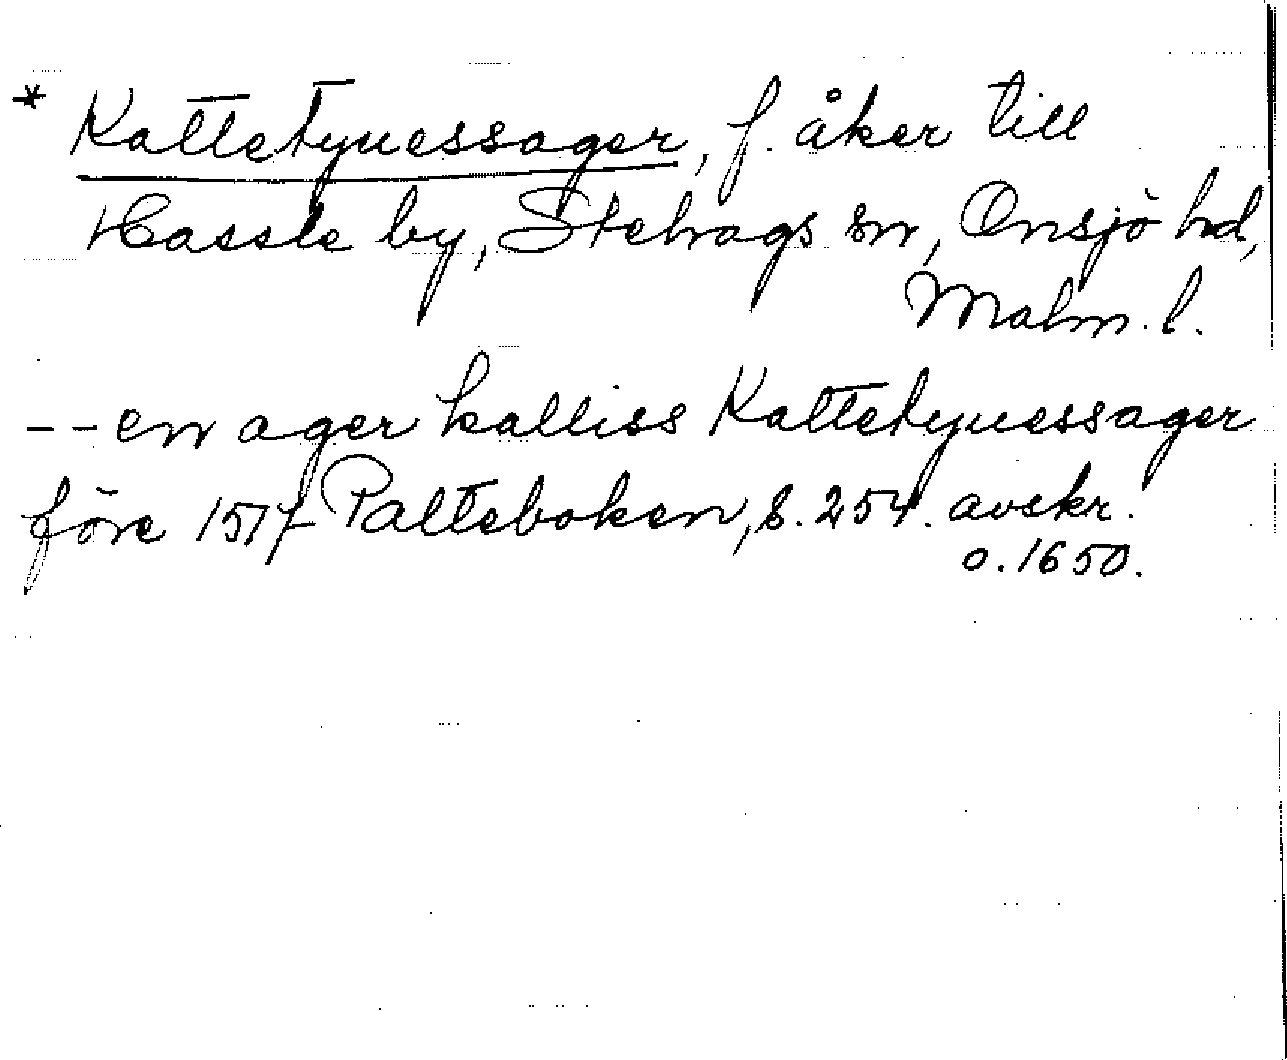 * Kattetyuessager, f. åker till
Hassle by, Stehags sn, Onsjö hd,
Malm. l.
-- en ager kalliss Kattetyuessager
före 1517 Palteboken, s. 254. avskr.
o. 1650.